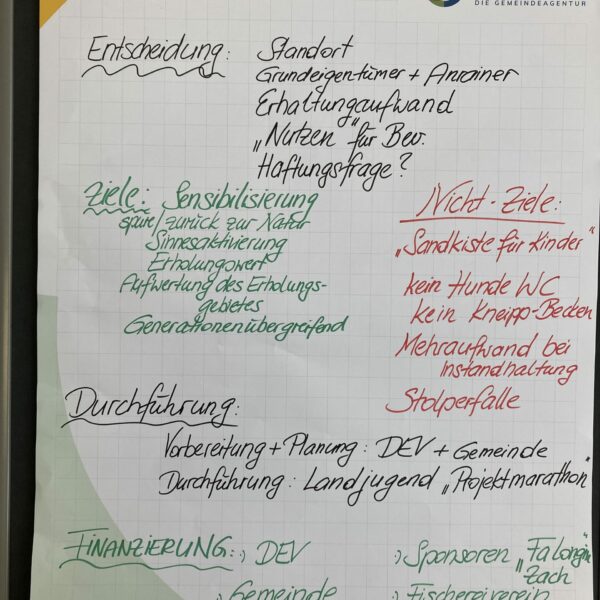 DIE GEMEINDEAGENTUR
Entscheidung: Standort
Grundeigentümer + Anrainer
Erhaltungaufwand
„Nutzen" für Bev.
Haftungsfrage?
Ziele: Sensibilisierung
spüre/zurück zur Natur
Sinnesaktivierung
Erholungswert
Aufwertung des Erholungs-
gebietes
Generationenübergreifend
Nicht-Ziele:
„Sandkiste für Kinder"
kein Hunde WC
kein Kneipp-Becken
Mehraufwand bei
Instandhaltung
Stolperfalle
Durchführung:
Vorbereitung + Planung: DEV + Gemeinde
Durchführung: Landjugend „Projektmarathon"
FINANZIERUNG: :) DEV
Gemeinde
:) Sponsoren
Zach
:) Fischereiverein